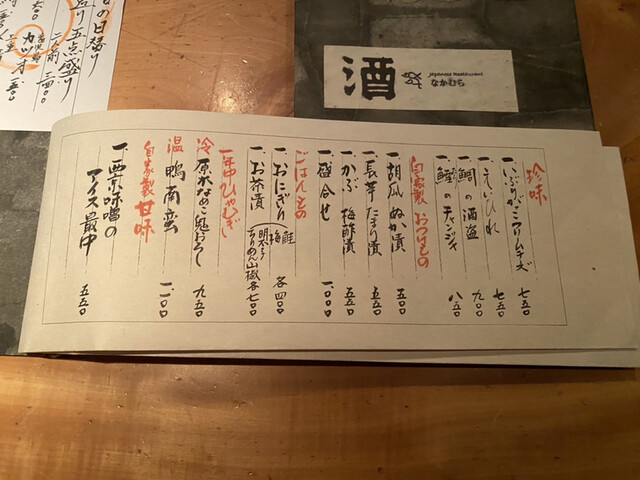 珍味
一、いぶりがっこクリームチーズ 七五〇
一、えいひれ 七五〇
一、鯛の酒盗 九〇〇
一、鱈のチャンジャ 八五〇
自家製 おつけもの
一、胡瓜 ぬか漬 五〇〇
一、長芋 たまり漬 五五〇
一、かぶ 梅酢漬 五五〇
一、盛合せ 一、〇〇〇
ごはんもの
一、おにぎり(鮭 梅 各四〇〇
一、お茶漬 明太子 ちりめん山椒 各七〇〇
一年中ひやむぎ
冷 原木なめこ鬼おろし 九五〇
温 鴨南蛮 一、二〇〇
自家製 甘味
一、西京味噌の
アイス最中 五五〇
酒
Japanese Restaurant
なかむら
日替り
五点盛り
カツオ